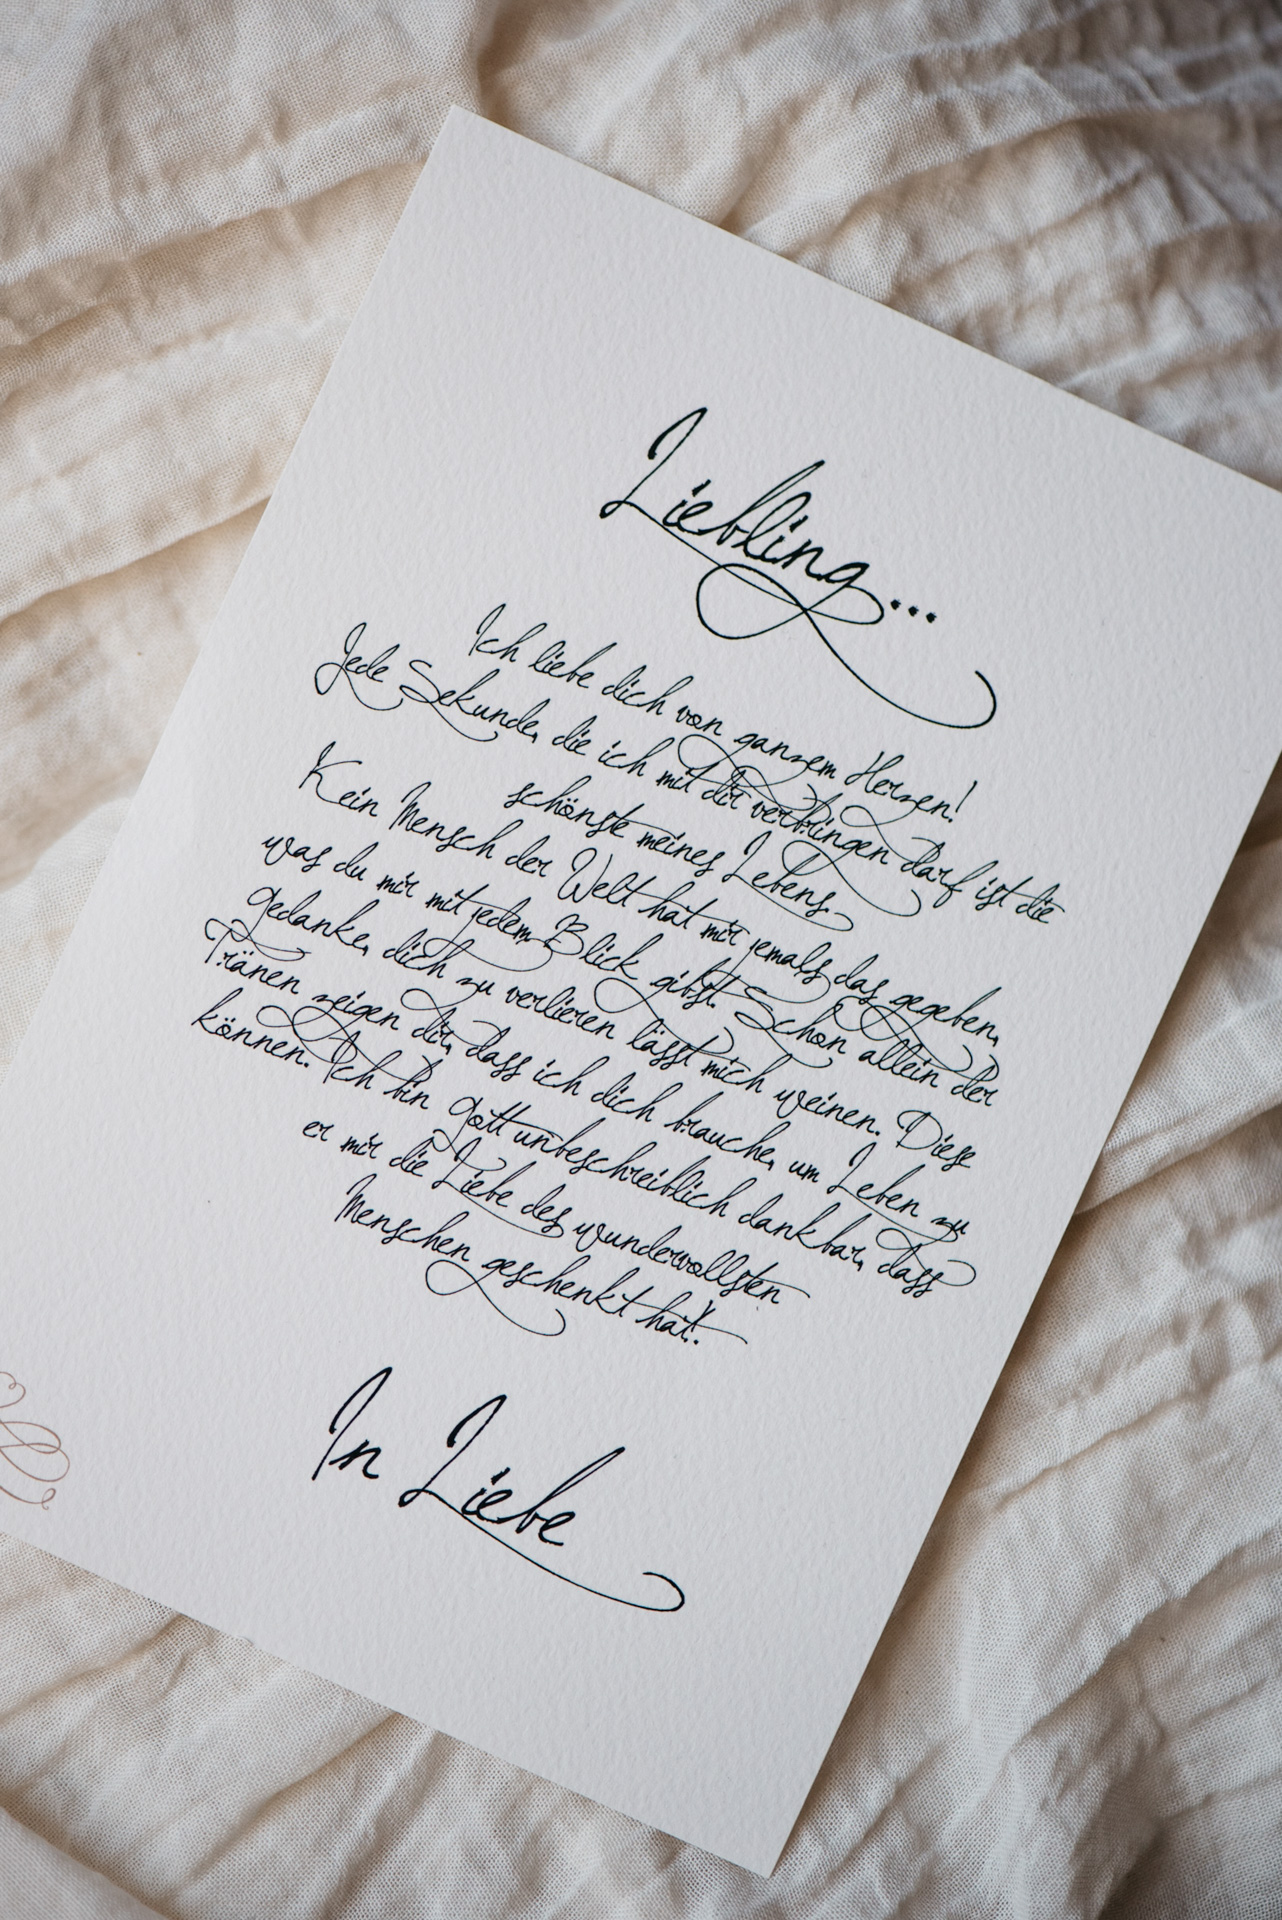 Liebling...
Ich liebe dich von ganzem Herzen!
Jede Sekunde, die ich mit dir verbringen darf ist die
schönste meines Lebens.
Kein Mensch der Welt hat mir jemals das gegeben,
was du mir mit jedem Blick gibst. Schon allein der
Gedanke, dich zu verlieren lässt mich weinen. Diese
Tränen zeigen dir, dass ich dich brauche, um Leben zu
können. Ich bin Gott unbeschreiblich dankbar, dass
er mir die Liebe des wundervollsten
Menschen geschenkt hat!.
In Liebe